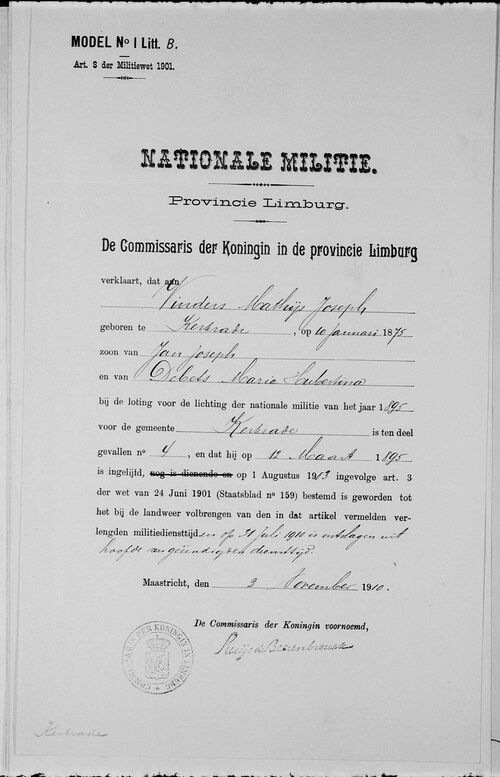 MODEL No I Litt. B.
Art. 3 der Militiewet 1901.
NATIONALE MILITIE.
Provincie Limburg.
De Commissaris der Koningin in de provincie Limburg
verklaart, dat aan
Vinders Mathijs Joseph
geboren te Kerkrade, op 10 Januari 1875
zoon van Jan Joseph
en van Debets Maria Hubertina
bij de loting voor de lichting der nationale militie van het jaar 1895
voor de gemeente Kerkrade is ten deel
gevallen no 4, en dat hij op 12 Maart 1895
is ingelijfd, nog is dienende en op 1 Augustus 1913 ingevolge art. 3
der wet van 24 Juni 1901 (Staatsblad no 159) bestemd is geworden tot
het bij de landweer volbrengen van den in dat artikel vermelden ver-
lengden militiediensttijd, en op 31 Juli 1910 is ontslagen uit
hoofde van geëindigden diensttijd.
Maastricht, den 2 November 1910.
De Commissaris der Koningin voornoemd,
Ruijs de Beerenbrouck
COMMISSARIS DER KONINGIN IN LIMBURG
Kerkrade